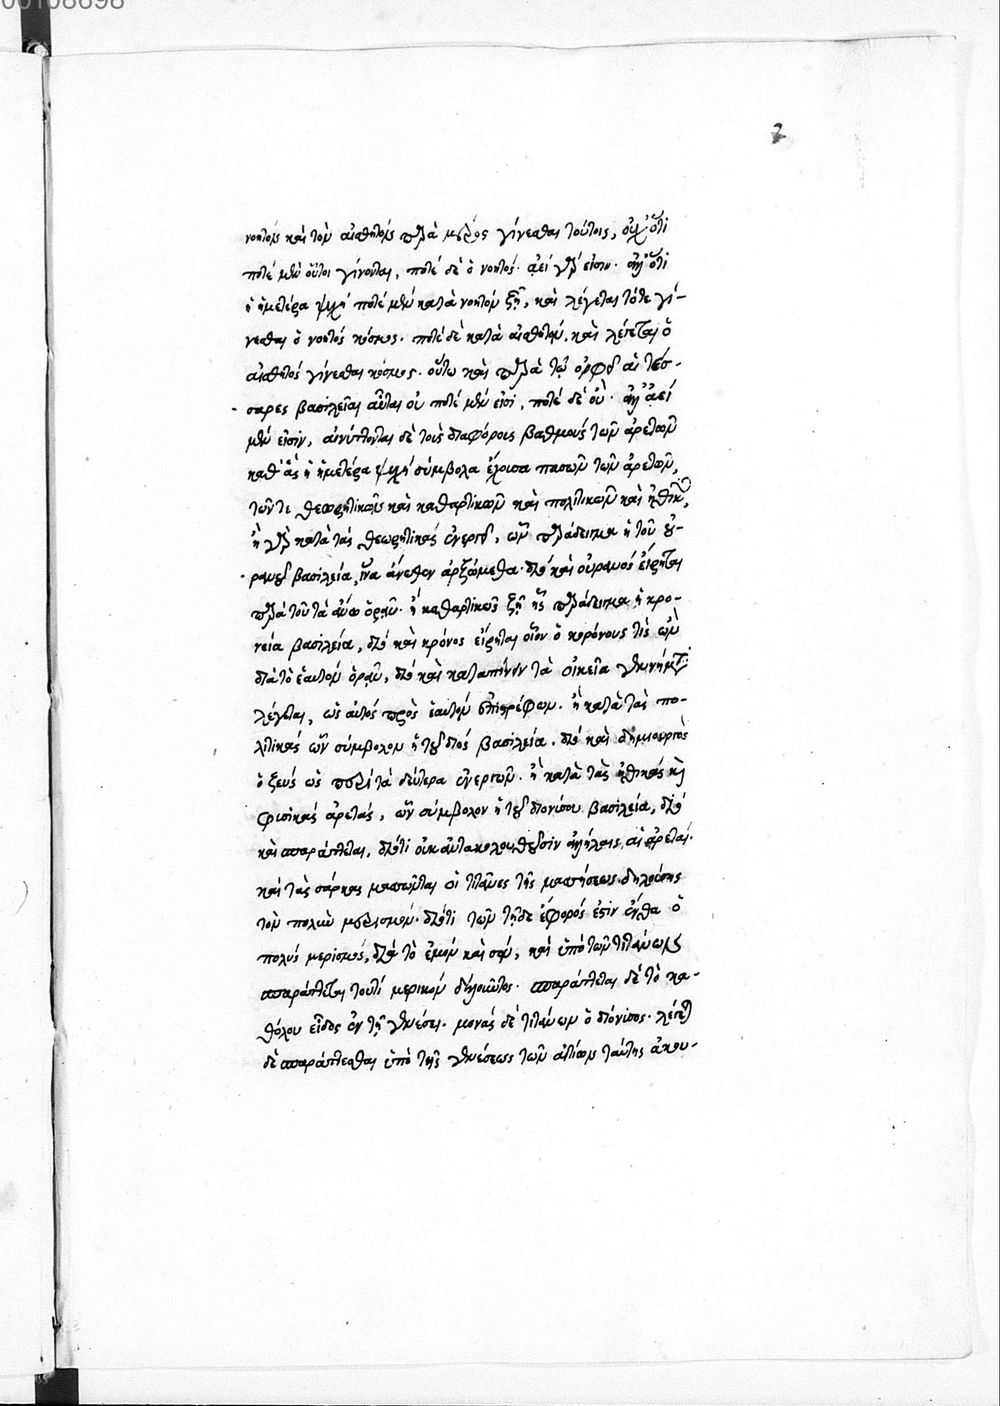 00108698
2
νοητὸν καὶ τὸν αἰσθητὸν παρὰ μέρος γίνεσθαι τούτοις, οὐχ ὅτι
ποτὲ μὲν οὗτοι γίνονται, ποτὲ δὲ ὁ νοητός· ἀεὶ γάρ εἰσιν· ἀλλ' ὅτι
ἡ ἡμετέρα ψυχὴ ποτὲ μὲν κατὰ νοητὸν ζῇ, καὶ λέγεται τότε γί-
νεσθαι ὁ νοητὸς κόσμος· ποτὲ δὲ κατὰ αἰσθητὸν, καὶ λέγεται ὁ
αἰσθητὸς γίνεσθαι κόσμος· οὕτω καὶ παρὰ τῷ ὀρφεῖ αἱ τέσ-
σαρες βασιλεῖαι αὗται οὐ ποτὲ μέν εἰσι, ποτὲ δὲ οὔ· ἀλλ' ἀεὶ
μέν εἰσιν, αἰνίττονται δὲ τοὺς διαφόρους βαθμοὺς τῶν ἀρετῶν
καθ' ἃς ἡ ἡμετέρα ψυχὴ σύμβολα ἔχουσα πασῶν τῶν ἀρετῶν,
τῶν τε θεωρητικῶν καὶ καθαρτικῶν καὶ πολιτικῶν καὶ ἠθικῶν,
ἢ γὰρ κατὰ τὰς θεωρητικὰς ἐνεργεῖ, ὧν παράδειγμα ἡ τοῦ οὐ-
ρανοῦ βασιλεία, ἵνα ἄνωθεν ἀρξώμεθα· διὸ καὶ οὐρανὸς εἴρηται
παρὰ τοῦ τὰ ἄνω ὁρᾶν· ἢ καθαρτικῶς ζῇ ἧς παράδειγμα ἡ κρο-
νεία βασιλεία, διὸ καὶ κρόνος εἴρηται οἷον ὁ κορόνους τὶς ὢν
διὰ τὸ ἑαυτὸν ὁρᾶν, διὸ καὶ καταπίνειν τὰ οἰκεῖα γεννήματα
λέγεται, ὡς αὐτὸς πρὸς ἑαυτὸν ἐπιστρέφων. ἢ κατὰ τὰς πο-
λιτικὰς ὧν σύμβολον ἡ τοῦ διὸς βασιλεία. διὸ καὶ δημιουργὸς
ὁ ζεὺς ὡς περὶ τὰ δεύτερα ἐνεργῶν. ἢ κατὰ τὰς ἠθικὰς καὶ
φυσικὰς ἀρετάς, ὧν σύμβολον ἡ τοῦ διονύσου βασιλεία, διὸ
καὶ σπαράττεται, διότι οὐκ ἀντακολουθοῦσιν ἀλλήλαις αἱ ἀρεταί·
καὶ τὰς σάρκας μασῶνται οἱ τιτᾶνες τῆς μασήσεως δηλούσης
τὸν πολὺν μερισμόν. διότι τῶν τῇδε ἔφορός ἐστιν ἔνθα ὁ
πολὺς μερισμός, διὰ τὸ ἐμὸν καὶ σόν, καὶ ὑπὸ τῶν τιτάνων
σπαράττεται τοῦτι μερικὸν δηλοῦντος. σπαράττεται δὲ τὸ κα-
θόλου εἶδος ἐν τῇ γενέσει. μονὰς δὲ τιτάνων ὁ διόνυσος. λέγει
δὲ σπαράττεσθαι ὑπὸ τῆς γενέσεως τῶν αἰτίων ταύτης ἀκου-